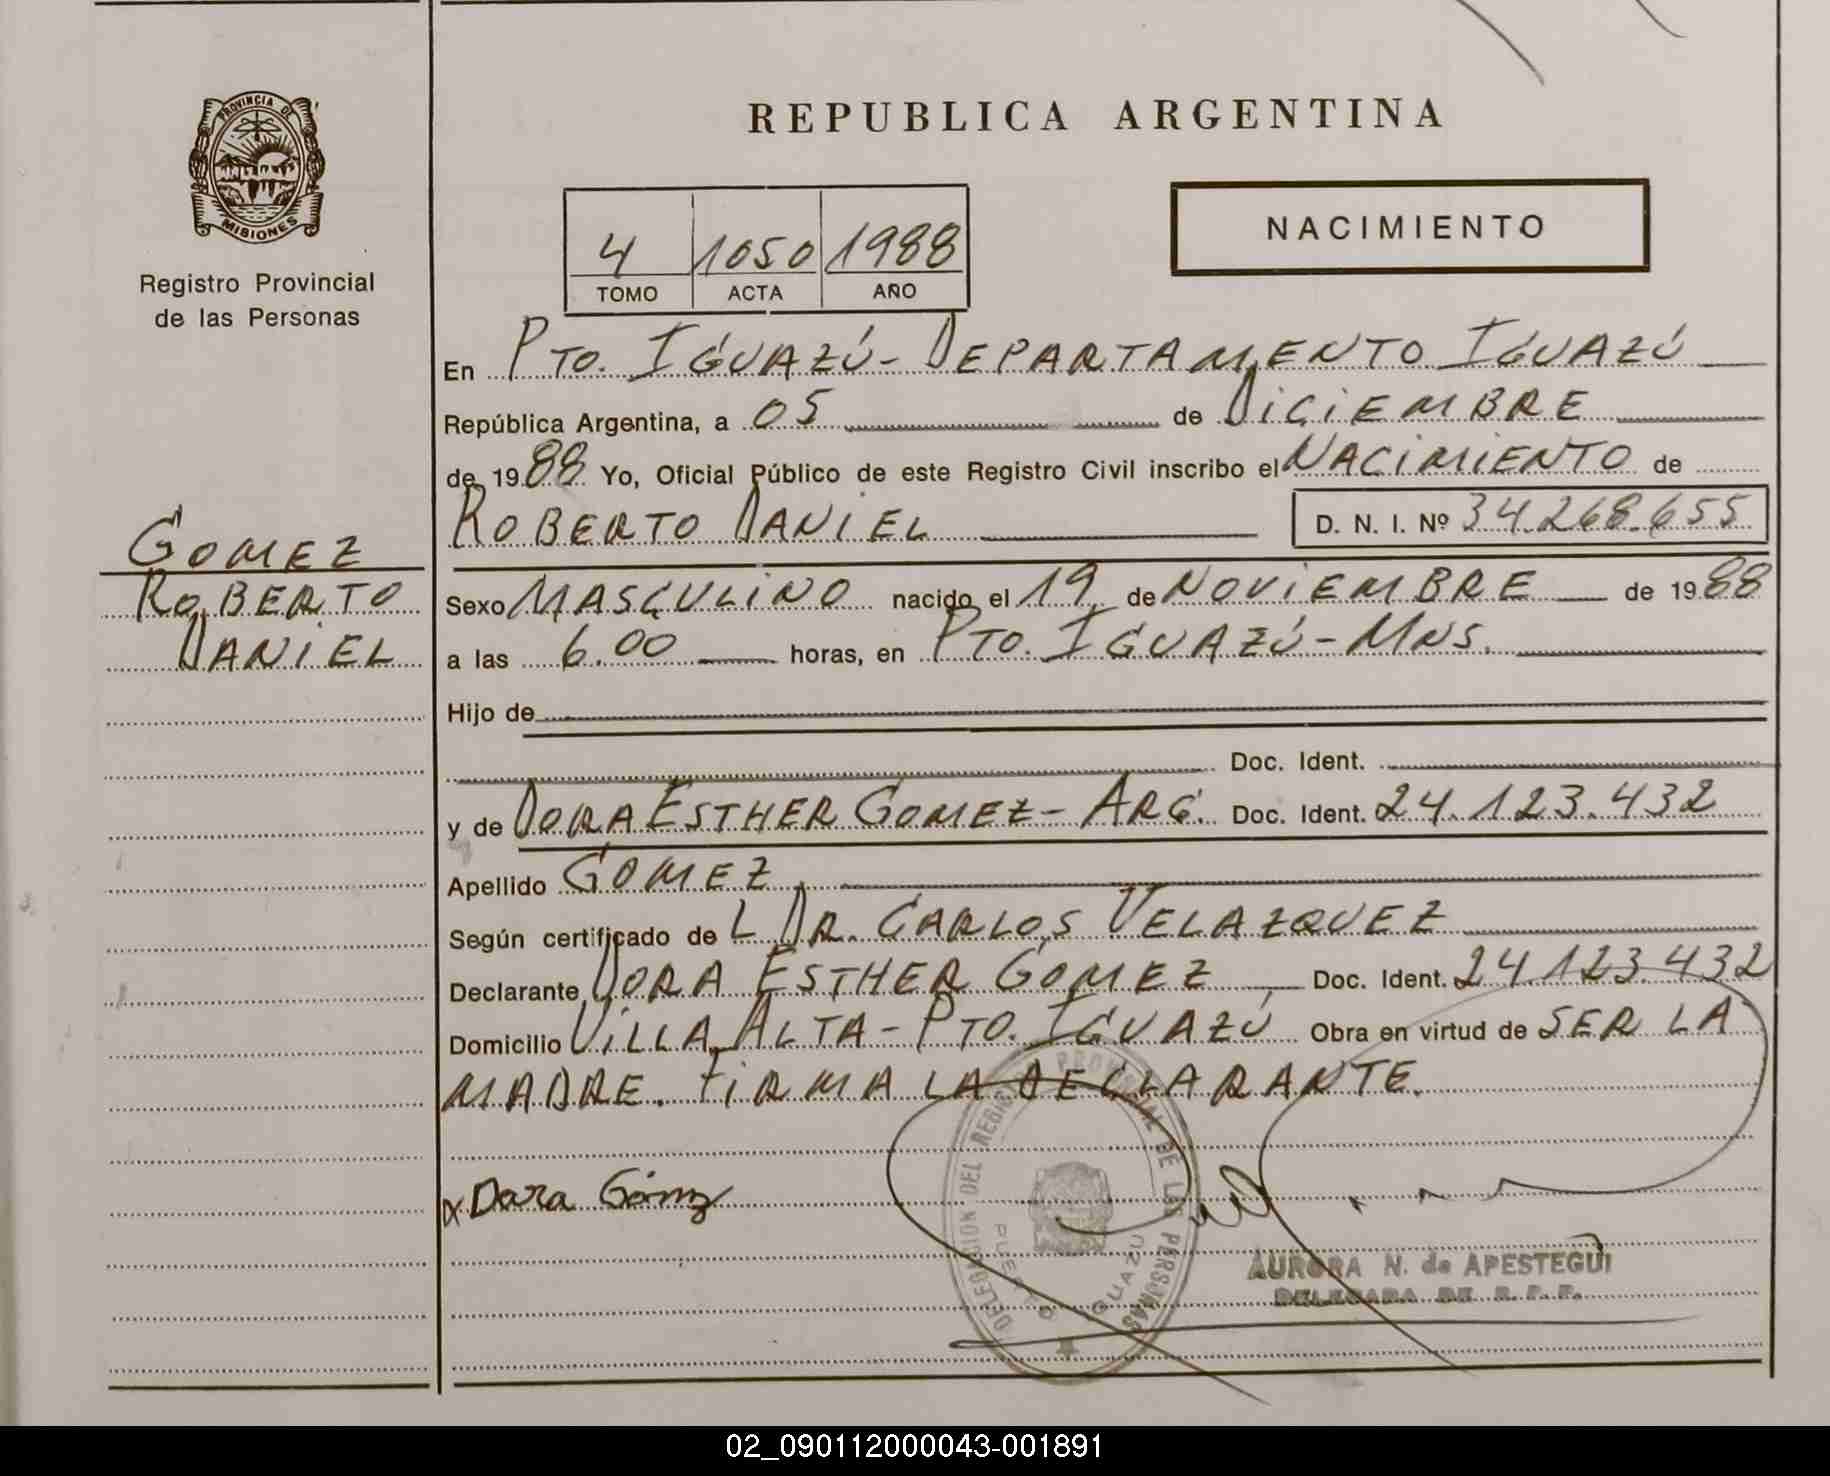 PROVINCIA DE
MISIONES
Registro Provincial
de las Personas
GOMEZ
ROBERTO
DANIEL
REPUBLICA ARGENTINA
4 1050 1988
TOMO ACTA AÑO
NACIMIENTO
En PTO. IGUAZÚ - DEPARTAMENTO IGUAZÚ
República Argentina, a 05 de DICIEMBRE
de 1988 Yo, Oficial Público de este Registro Civil inscribo el NACIMIENTO de
ROBERTO DANIEL D. N. I. Nº 34.268.655
Sexo MASCULINO nacido el 19 de NOVIEMBRE de 1988
a las 6.00 horas, en PTO. IGUAZÚ - MNS.
Hijo de
Doc. Ident.
y de DORA ESTHER GOMEZ - ARG. Doc. Ident. 24.123.432
Apellido GOMEZ
Según certificado de L DR. CARLOS VELAZQUEZ
Declarante DORA ESTHER GOMEZ Doc. Ident. 24.123.432
Domicilio VILLA ALTA - PTO. IGUAZÚ Obra en virtud de SER LA
MADRE. FIRMA LA DECLARANTE.
x Dora Gómez
DELEGACION DEL REGISTRO PROVINCIAL DE LAS PERSONAS
PUERTO IGUAZU
AURORA N. de APESTEGUI
DELEGADA DE R. P. P.
02_090112000043-001891